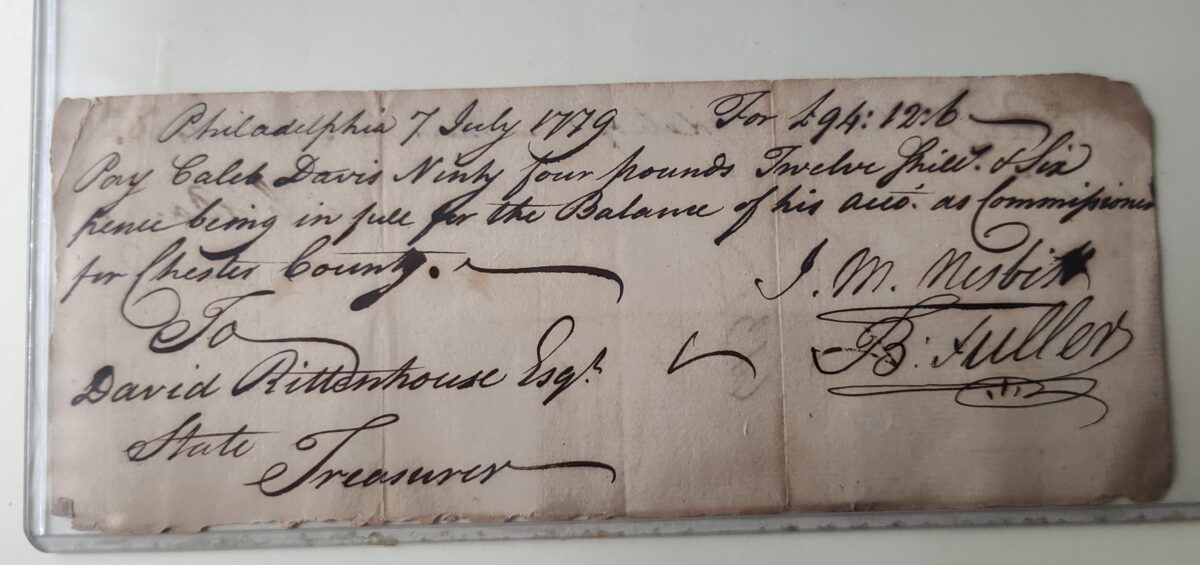 Philadelphia 7 July 1779 For £94:12:6
Pay Caleb Davis Ninty four pounds Twelve Shill.s & Six
pence being in full for the Balance of his acco.t as Commissioner
for Chester County.
J. M. Nesbitt
To
B. Fuller
David Rittenhouse Esq.r
State
Treasurer